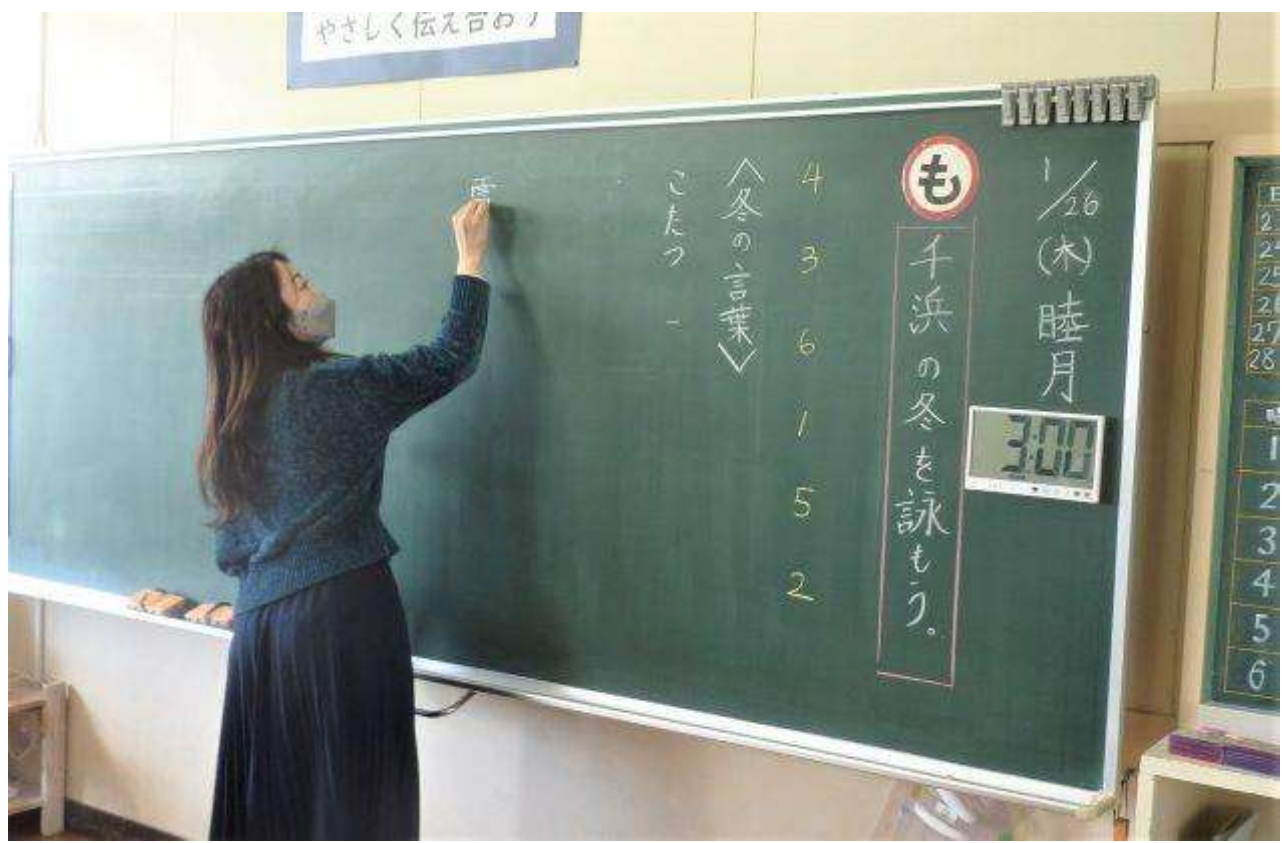 やさしく伝え合おう
1/26(木)睦月
3:00
も
千浜の冬を詠もう。
4 3 6 1 5 2
〈冬の言葉〉
こたつ 一
25
27
28
1
2
3
4
5
6